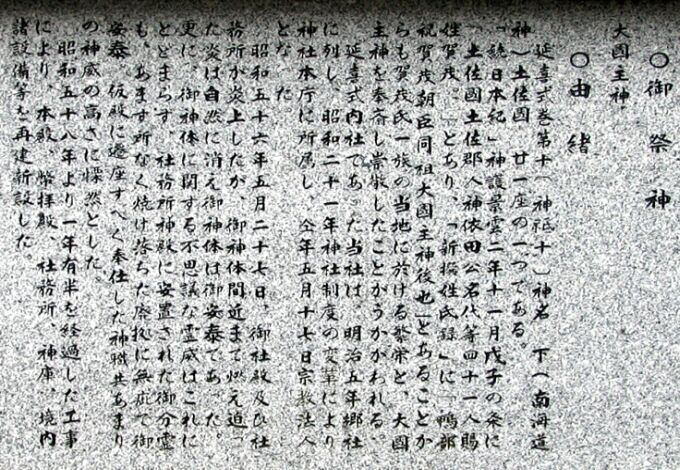 ○御祭神
大國主神
○由緒
延喜式巻第十(神祇十)神名 下(南海道
神)土佐國 廿一座の一つである。
「続日本紀」神護景雲二年十一月戊子の条に
「土佐國土佐郡人神依田公名代等四十一人賜
姓賀茂」とあり、「新撰姓氏録」に「鴨部
祝賀茂朝臣同祖大國主神後也」とあることか
らも賀茂氏一族の当地に於ける繁栄と、大國
主神を奉斉し崇敬したことがうかがわれる。
延喜式内社であった当社は、明治五年郷社
に列し、昭和二十一年神社制度の変革により
神社本庁に所属し、仝年五月十七日宗教法人
となった
昭和五十六年五月二十七日、御社殿及び社
務所が炎上したが、御神体間近まで燃え迫っ
た炎は自然に消え御神体は御安泰であった。
更に、御神体に関する不思議な霊威はこれに
とどまらず、社務所神殿に安置された御分霊
も、あます所なく焼け落ちた廃墟に無疵で御
安泰、仮殿に遷座すべく奉仕した神職共あまり
の神威の高さに慄然とした。
昭和五十八年より一年有半を経過した工事
により、本殿、幣拝殿、社務所、神庫、境内
諸設備等を再建新設した。